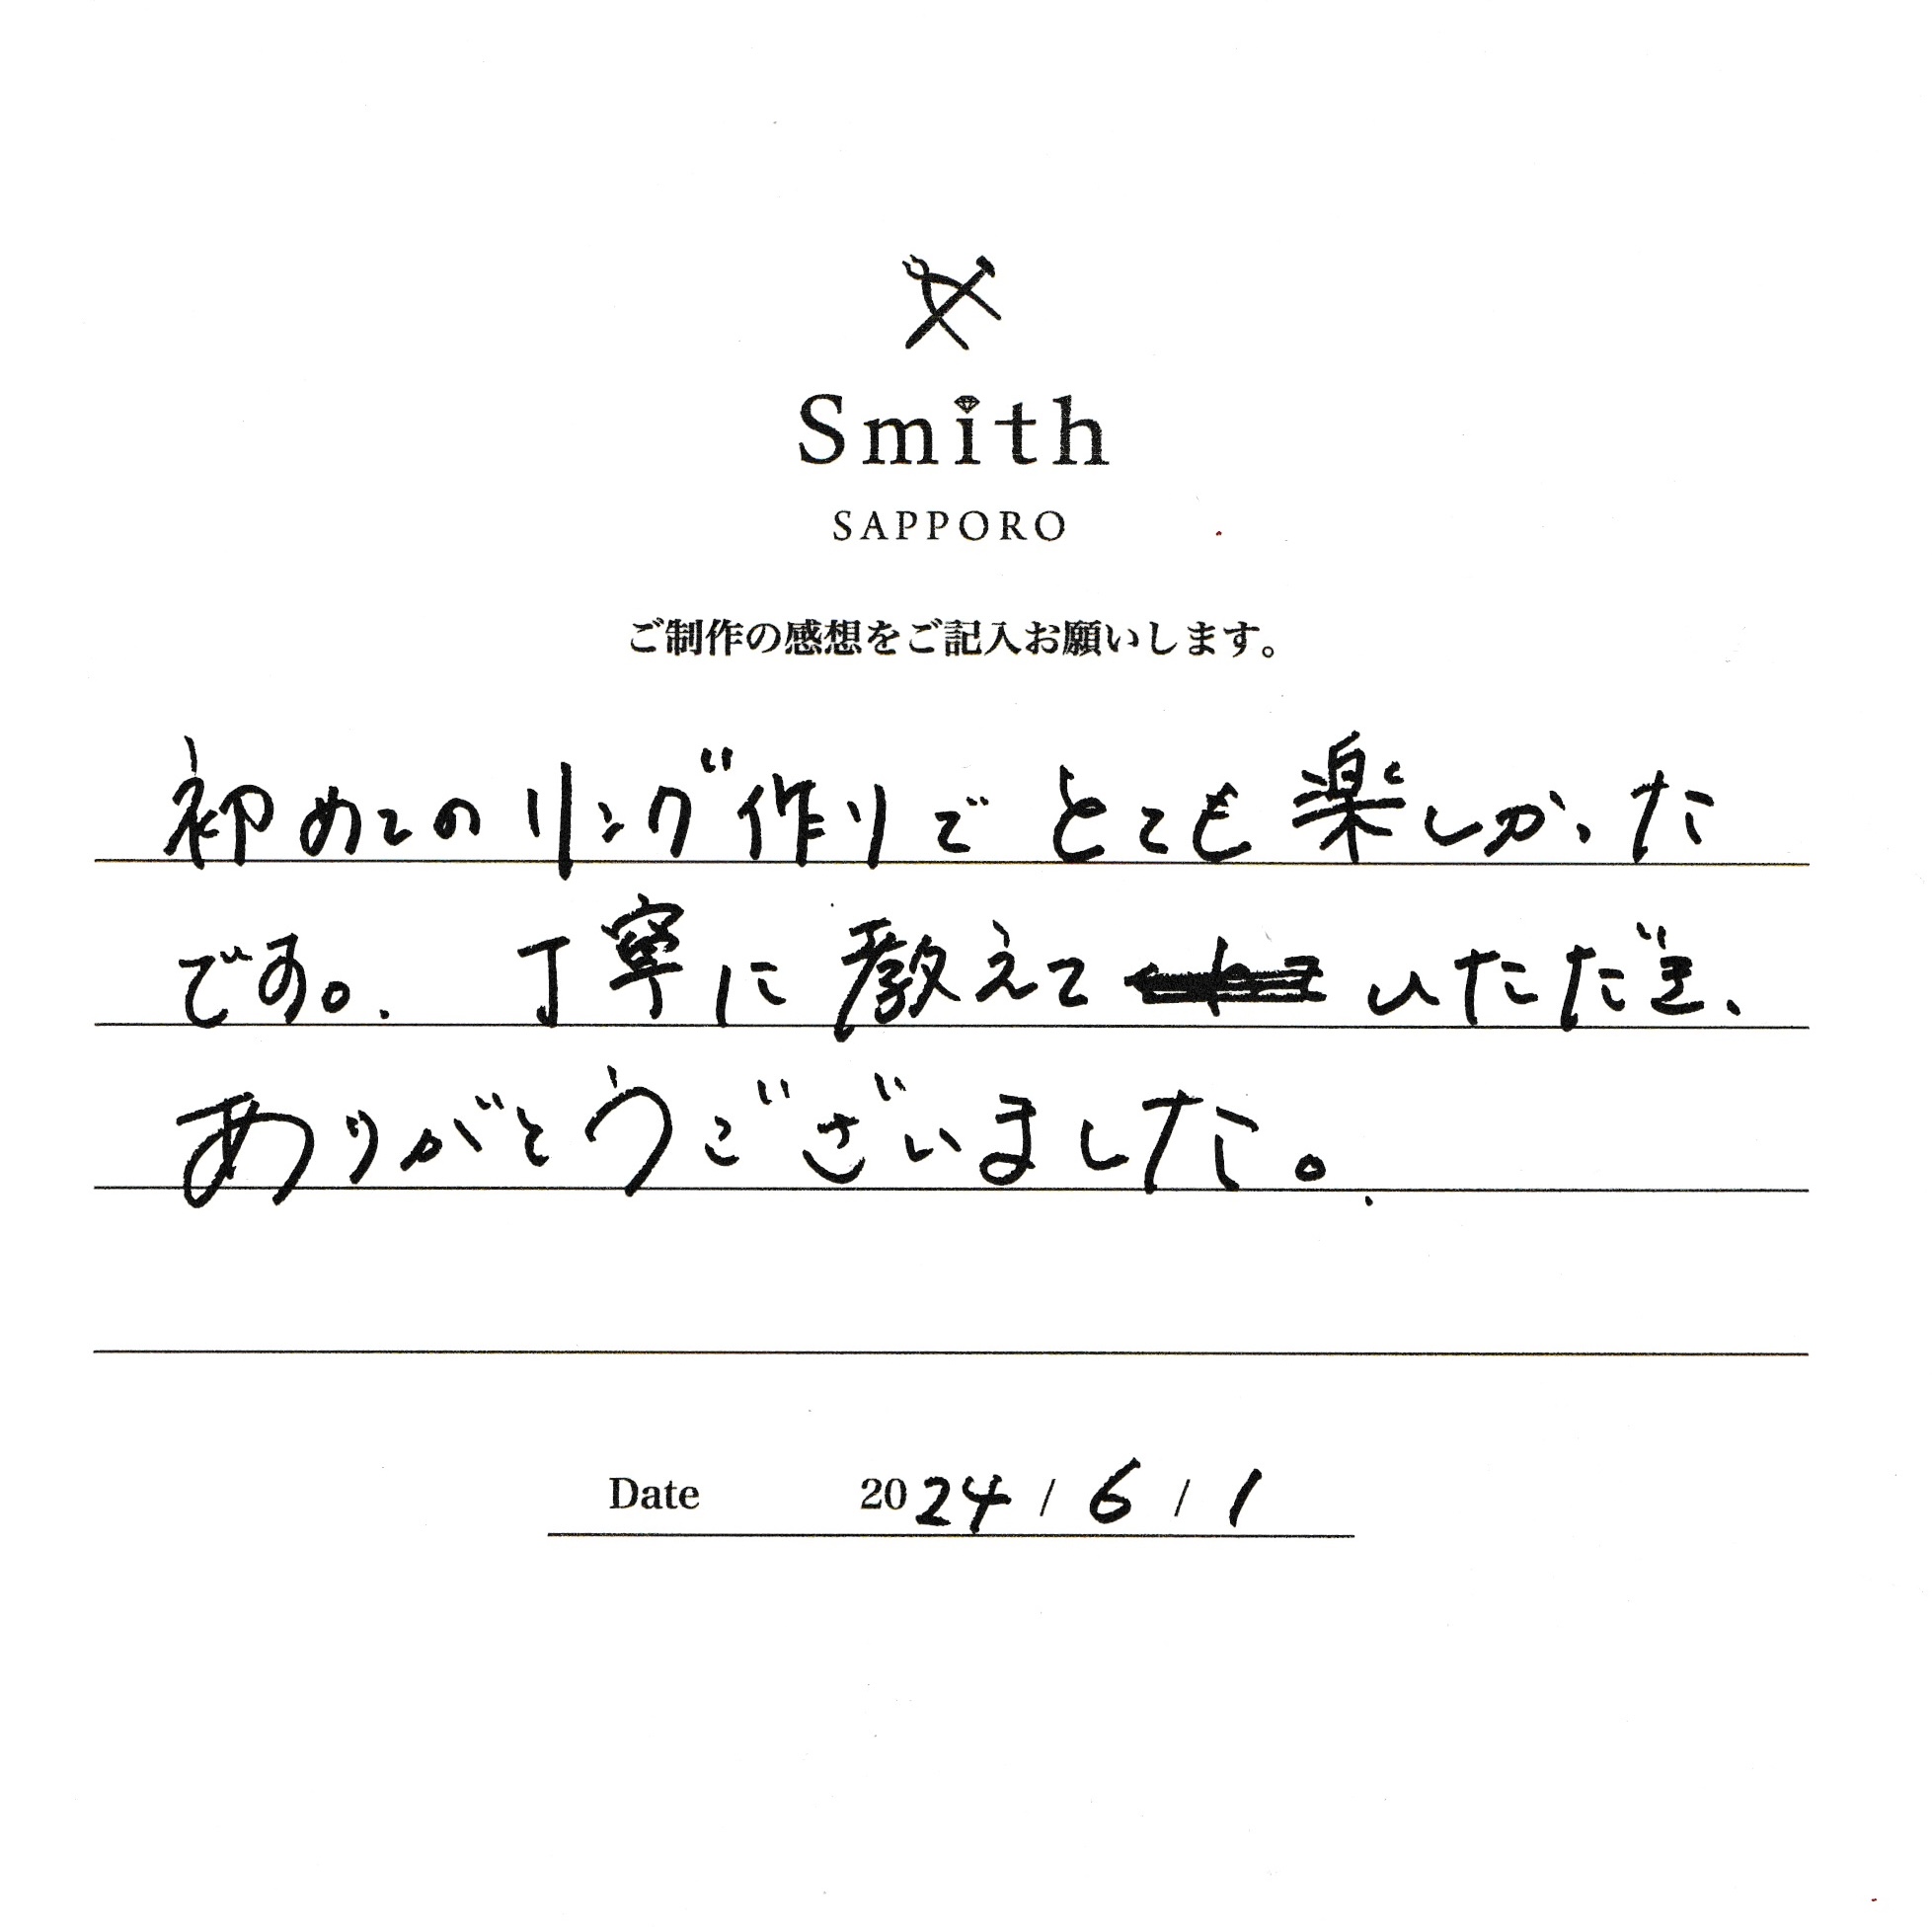 Smith
SAPPORO
ご制作の感想をご記入お願いします。
初めてのリング作りでとても楽しかった
です。丁寧に教えて いただき、
ありがとうございました。
Date 2024 / 6 / 1